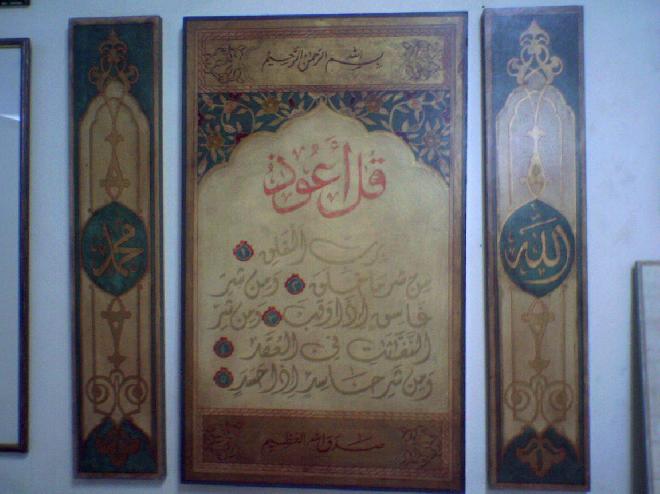 الله
بسم الله الرحمن الرحيم
قل أعوذ
برب الفلق ١
من شر ما خلق ٢ ومن شر
غاسق إذا وقب ٣ ومن شر
النفاثات في العقد ٤
ومن شر حاسد إذا حسد ٥
صدق الله العظيم
محمد